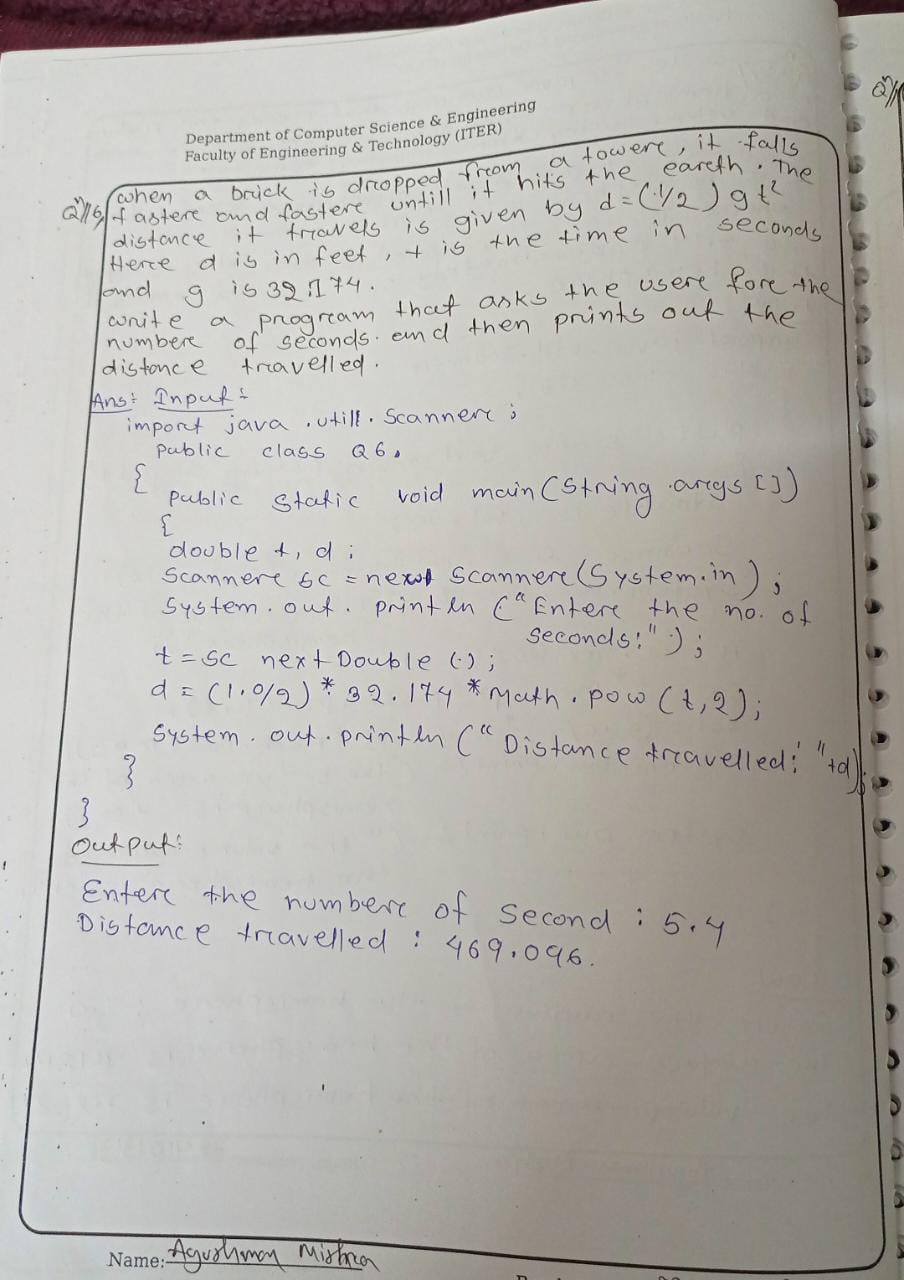 Department of Computer Science & Engineering
Faculty of Engineering & Technology (ITER)
Q)6) when a brick is dropped from a towere, it falls
fastere and fastere untill it hits the eareth. The
distance it travels is given by d=(1/2)gt²
Here d is in feet, t is the time in seconds
and g is 32.174.
write a program that asks the usere fore the
numbere of seconds. and then prints out the
distance travelled.
Ans: Input:
import java.utill.Scannere;
public class Q6.
{
public static void main(String args[])
{
double t, d;
Scannere sc = new Scannere(System.in);
System.out.println("Entere the no. of
seconds:");
t = sc nextDouble();
d = (1.0/2)*32.174*Math.pow(t,2);
System.out.println("Distance travelled:"+d);
}
}
Output:
Entere the numbere of second : 5.4
Distance travelled : 469.096.
Name: